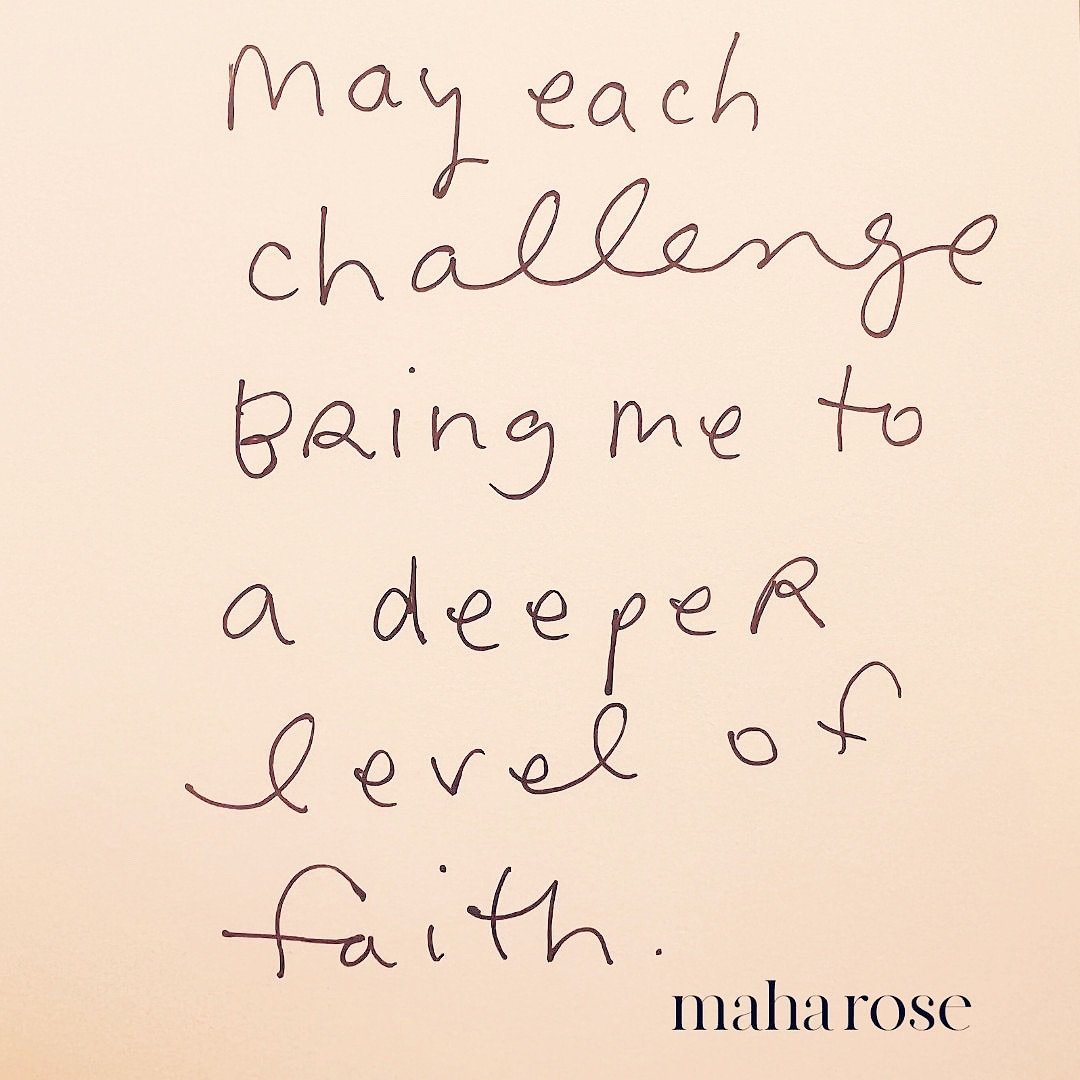 May each
challenge
BRing me to
a deepeR
level of
faith.
maha rose